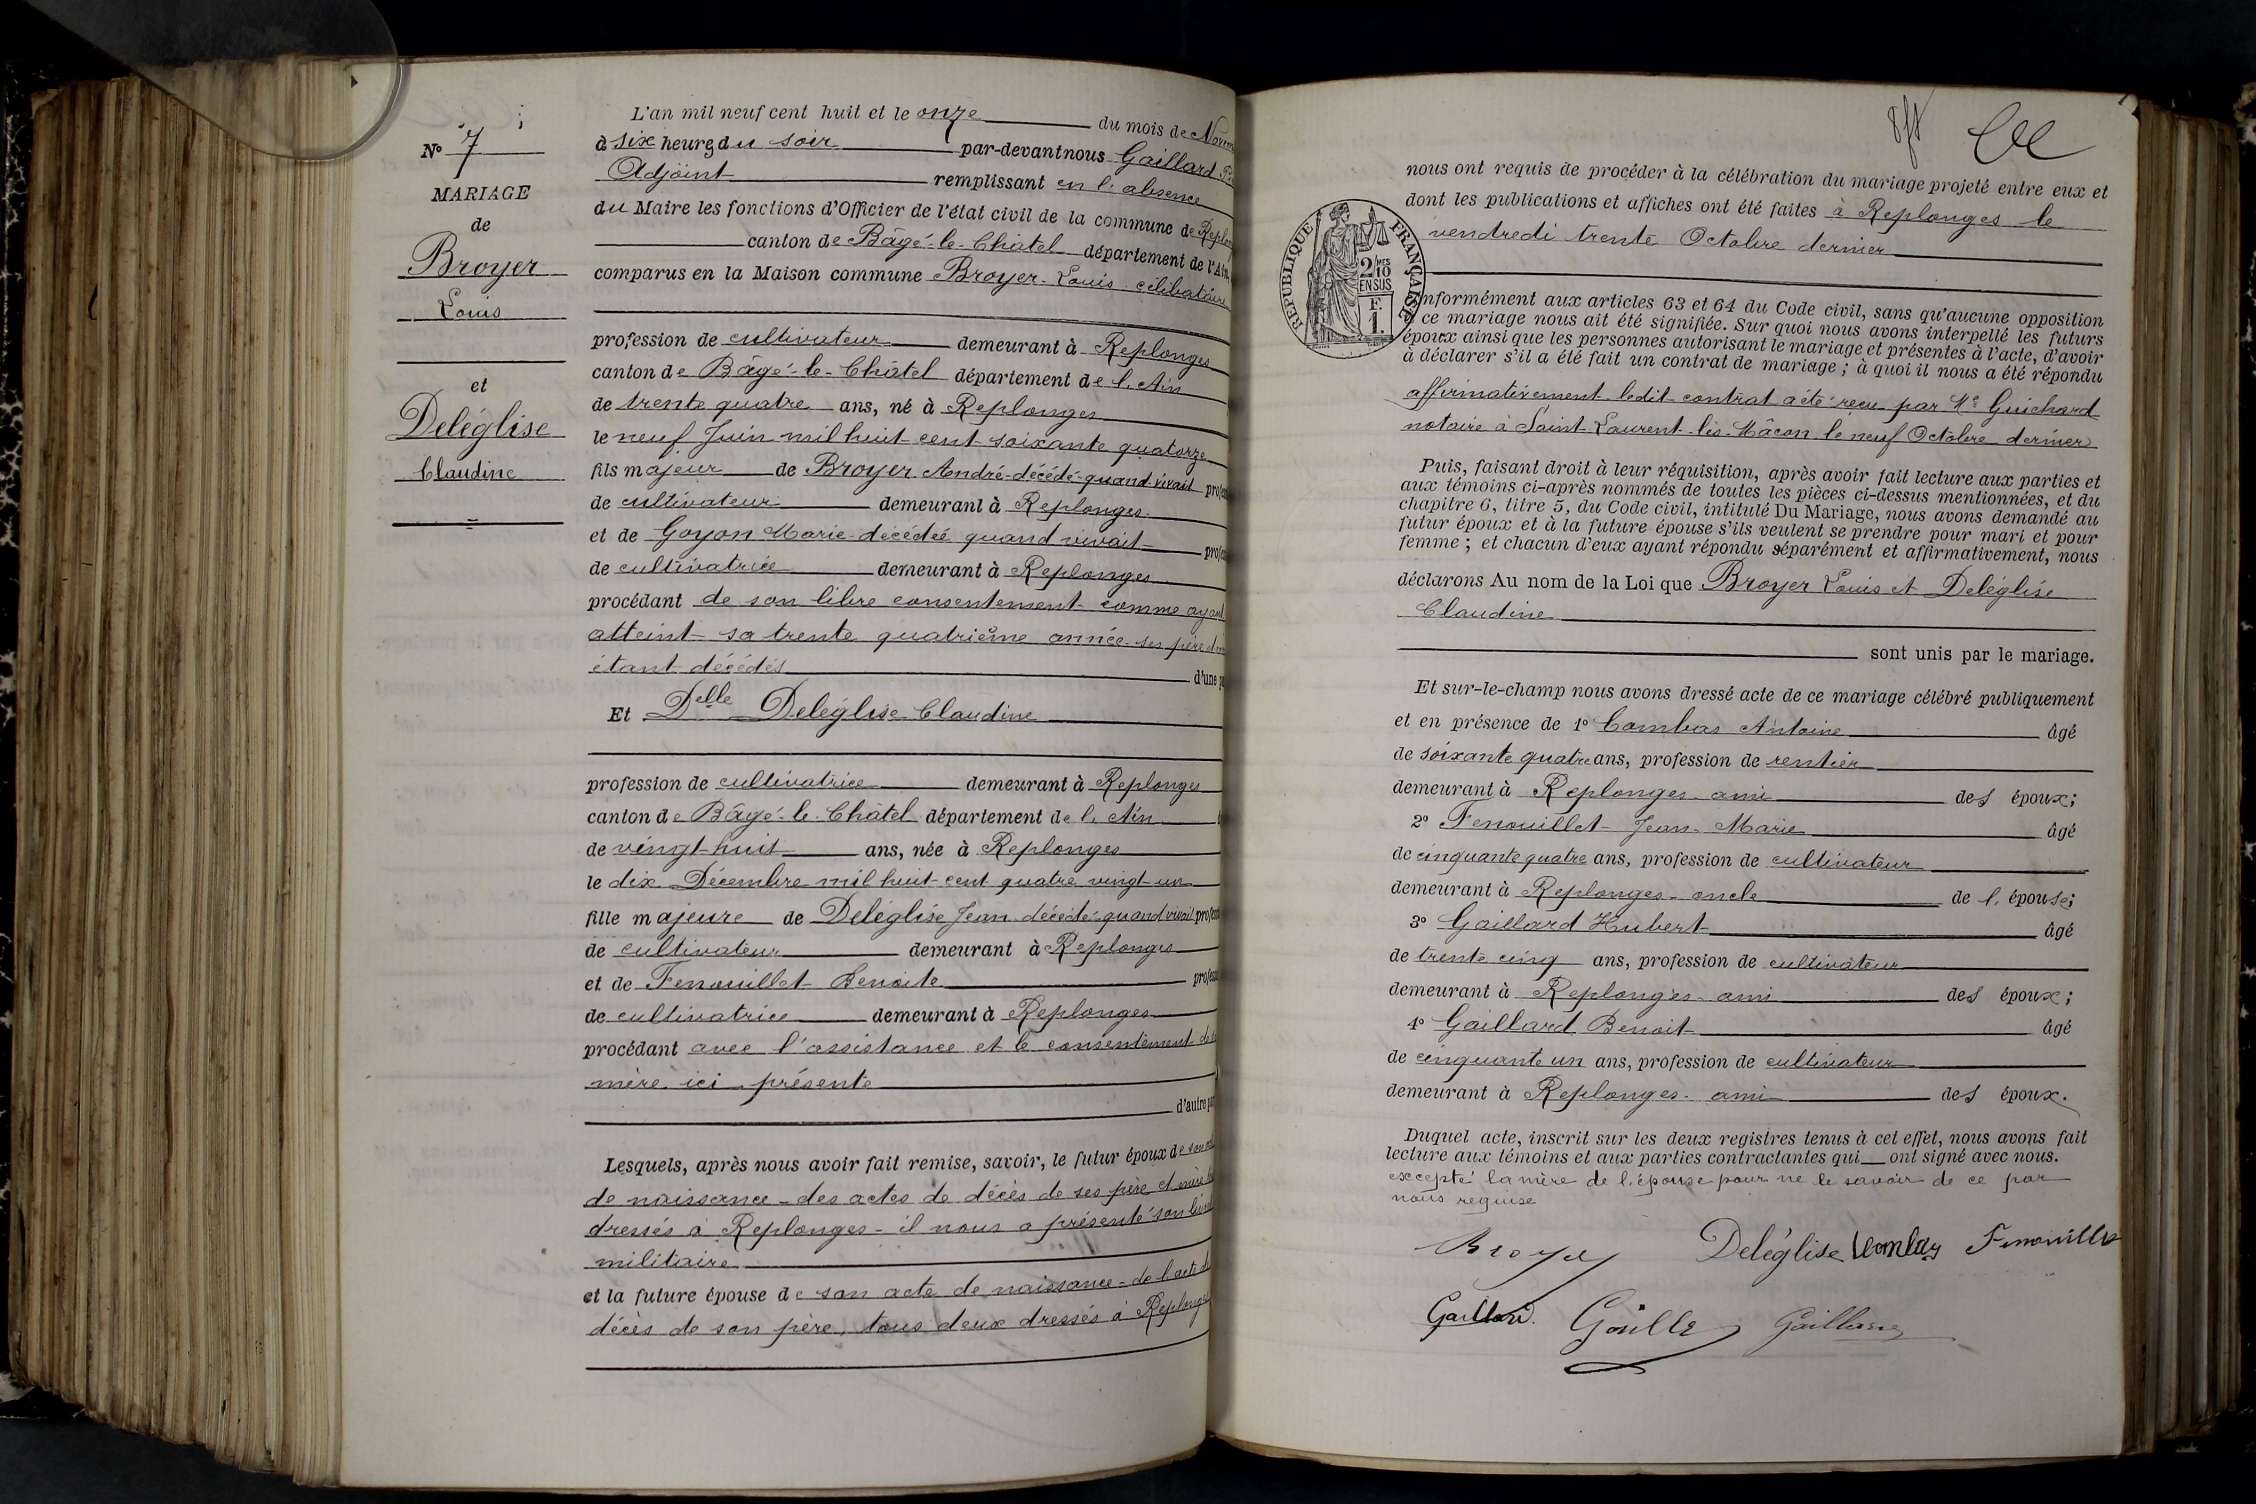 N° 7
MARIAGE
de
Broyer
Louis
et
Deléglise
Claudine
L'an mil neuf cent huit et le onze du mois de Novem
à six heures du soir par-devant nous Gaillard
Adjoint remplissant en l'absence
du Maire les fonctions d'Officier de l'état civil de la commune de Replon
canton de Bâgé-le-Châtel département de l'Ain,
comparus en la Maison commune Broyer Louis célibataire
profession de cultivateur demeurant à Replonges
canton de Bâgé-le-Châtel département de l'Ain
de trente quatre ans, né à Replonges
le neuf Juin mil huit cent soixante quatorze
fils majeur de Broyer André décédé quand vivait profes
de cultivateur demeurant à Replonges
et de Goyon Marie décédée quand vivait profes
de cultivatrice demeurant à Replonges
procédant de son libre consentement comme ayant
atteint sa trente quatrième année ses père
étant décédés d'une pa
Et Delle Deléglise Claudine
profession de cultivatrice demeurant à Replonges
canton de Bâgé-le-Châtel département de l'Ain
de vingt-huit ans, née à Replonges
le dix Décembre mil huit cent quatre vingt un
fille majeure de Deléglise Jean décédé quand vivait profess
de cultivateur demeurant à Replonges
et de Fenouillet Benoite profess
de cultivatrice demeurant à Replonges
procédant avec l'assistance et le consentement de
mère ici présente
d'autre pa
Lesquels, après nous avoir fait remise, savoir, le futur époux de son
de naissance – des actes de décès de ses père et mère
dressés à Replonges – il nous a présenté son livret
militaire
et la future épouse de son acte de naissance – de l'acte de
décès de son père, tous deux dressés à Replonges
nous ont requis de procéder à la célébration du mariage projeté entre eux et
dont les publications et affiches ont été faites à Replonges le
vendredi trente Octobre dernier
RÉPUBLIQUE FRANÇAISE
2/10 MES
EN SUS
F.
1.
onformément aux articles 63 et 64 du Code civil, sans qu'aucune opposition
ce mariage nous ait été signifiée. Sur quoi nous avons interpellé les futurs
époux ainsi que les personnes autorisant le mariage et présentes à l'acte, d'avoir
à déclarer s'il a été fait un contrat de mariage ; à quoi il nous a été répondu
affirmativement ledit contrat a été reçu par Me Guichard
notaire à Saint-Laurent-lès-Mâcon le neuf Octobre dernier
Puis, faisant droit à leur réquisition, après avoir fait lecture aux parties et
aux témoins ci-après nommés de toutes les pièces ci-dessus mentionnées, et du
chapitre 6, titre 5, du Code civil, intitulé Du Mariage, nous avons demandé au
futur époux et à la future épouse s'ils veulent se prendre pour mari et pour
femme ; et chacun d'eux ayant répondu séparément et affirmativement, nous
déclarons Au nom de la Loi que Broyer Louis et Deléglise
Claudine
sont unis par le mariage.
Et sur-le-champ nous avons dressé acte de ce mariage célébré publiquement
et en présence de 1° Combas Antoine âgé
de soixante quatre ans, profession de rentier
demeurant à Replonges ami des époux;
2° Fenouillet Jean-Marie âgé
de cinquante quatre ans, profession de cultivateur
demeurant à Replonges oncle de l'épouse;
3° Gaillard Hubert âgé
de trente cinq ans, profession de cultivateur
demeurant à Replonges ami des époux;
4° Gaillard Benoit âgé
de cinquante un ans, profession de cultivateur
demeurant à Replonges ami des époux.
Duquel acte, inscrit sur les deux registres tenus à cet effet, nous avons fait
lecture aux témoins et aux parties contractantes qui ont signé avec nous.
excepté la mère de l'épouse pour ne le savoir de ce par
nous requise
Broyer Deléglise Combas Fenouillet
Gaillard. Gaillard